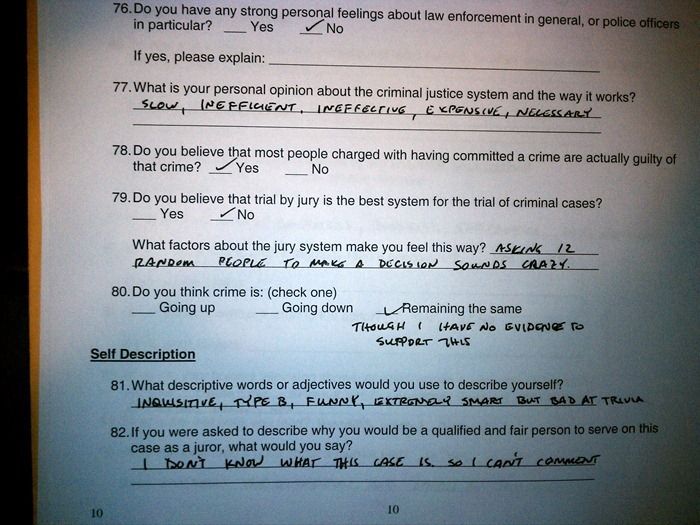 76. Do you have any strong personal feelings about law enforcement in general, or police officers
in particular? ___ Yes ✓ No
If yes, please explain: ___
77. What is your personal opinion about the criminal justice system and the way it works?
SLOW, INEFFICIENT, INEFFECTIVE, EXPENSIVE, NECESSARY
78. Do you believe that most people charged with having committed a crime are actually guilty of
that crime? ✓ Yes ___ No
79. Do you believe that trial by jury is the best system for the trial of criminal cases?
___ Yes ✓ No
What factors about the jury system make you feel this way? ASKING 12
RANDOM PEOPLE TO MAKE A DECISION SOUNDS CRAZY.
80. Do you think crime is: (check one)
___ Going up ___ Going down ✓ Remaining the same
THOUGH I HAVE NO EVIDENCE TO
SUPPORT THIS
Self Description
81. What descriptive words or adjectives would you use to describe yourself?
INQUISITIVE, TYPE B, FUNNY, EXTREMELY SMART BUT BAD AT TRIVIA
82. If you were asked to describe why you would be a qualified and fair person to serve on this
case as a juror, what would you say?
I DON'T KNOW WHAT THIS CASE IS, SO I CAN'T COMMENT
10 10